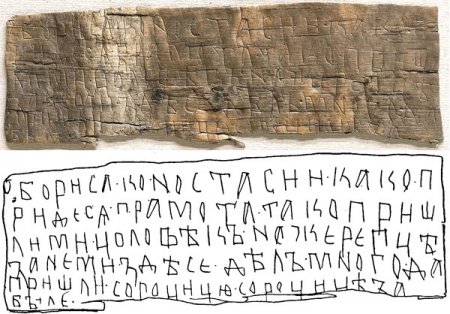 Ѿ БОРИСА·КО NОСТАСИИ·КАКО·П
РИДЕСА·ГРАМОТА·ТАКО ПРИШ
ЛИ МИ·ЦОЛОВѢКЪ·NА ЖЕРЕПЦѢ
ЗАNЕ МИ ЗДѢСЕ·ДѢЛЪ МNОГО ДА
ПРИШЛИ·СОРОЦИЦЮ·СОРОЦИЦѢ ЗА
БЫЛЕ·